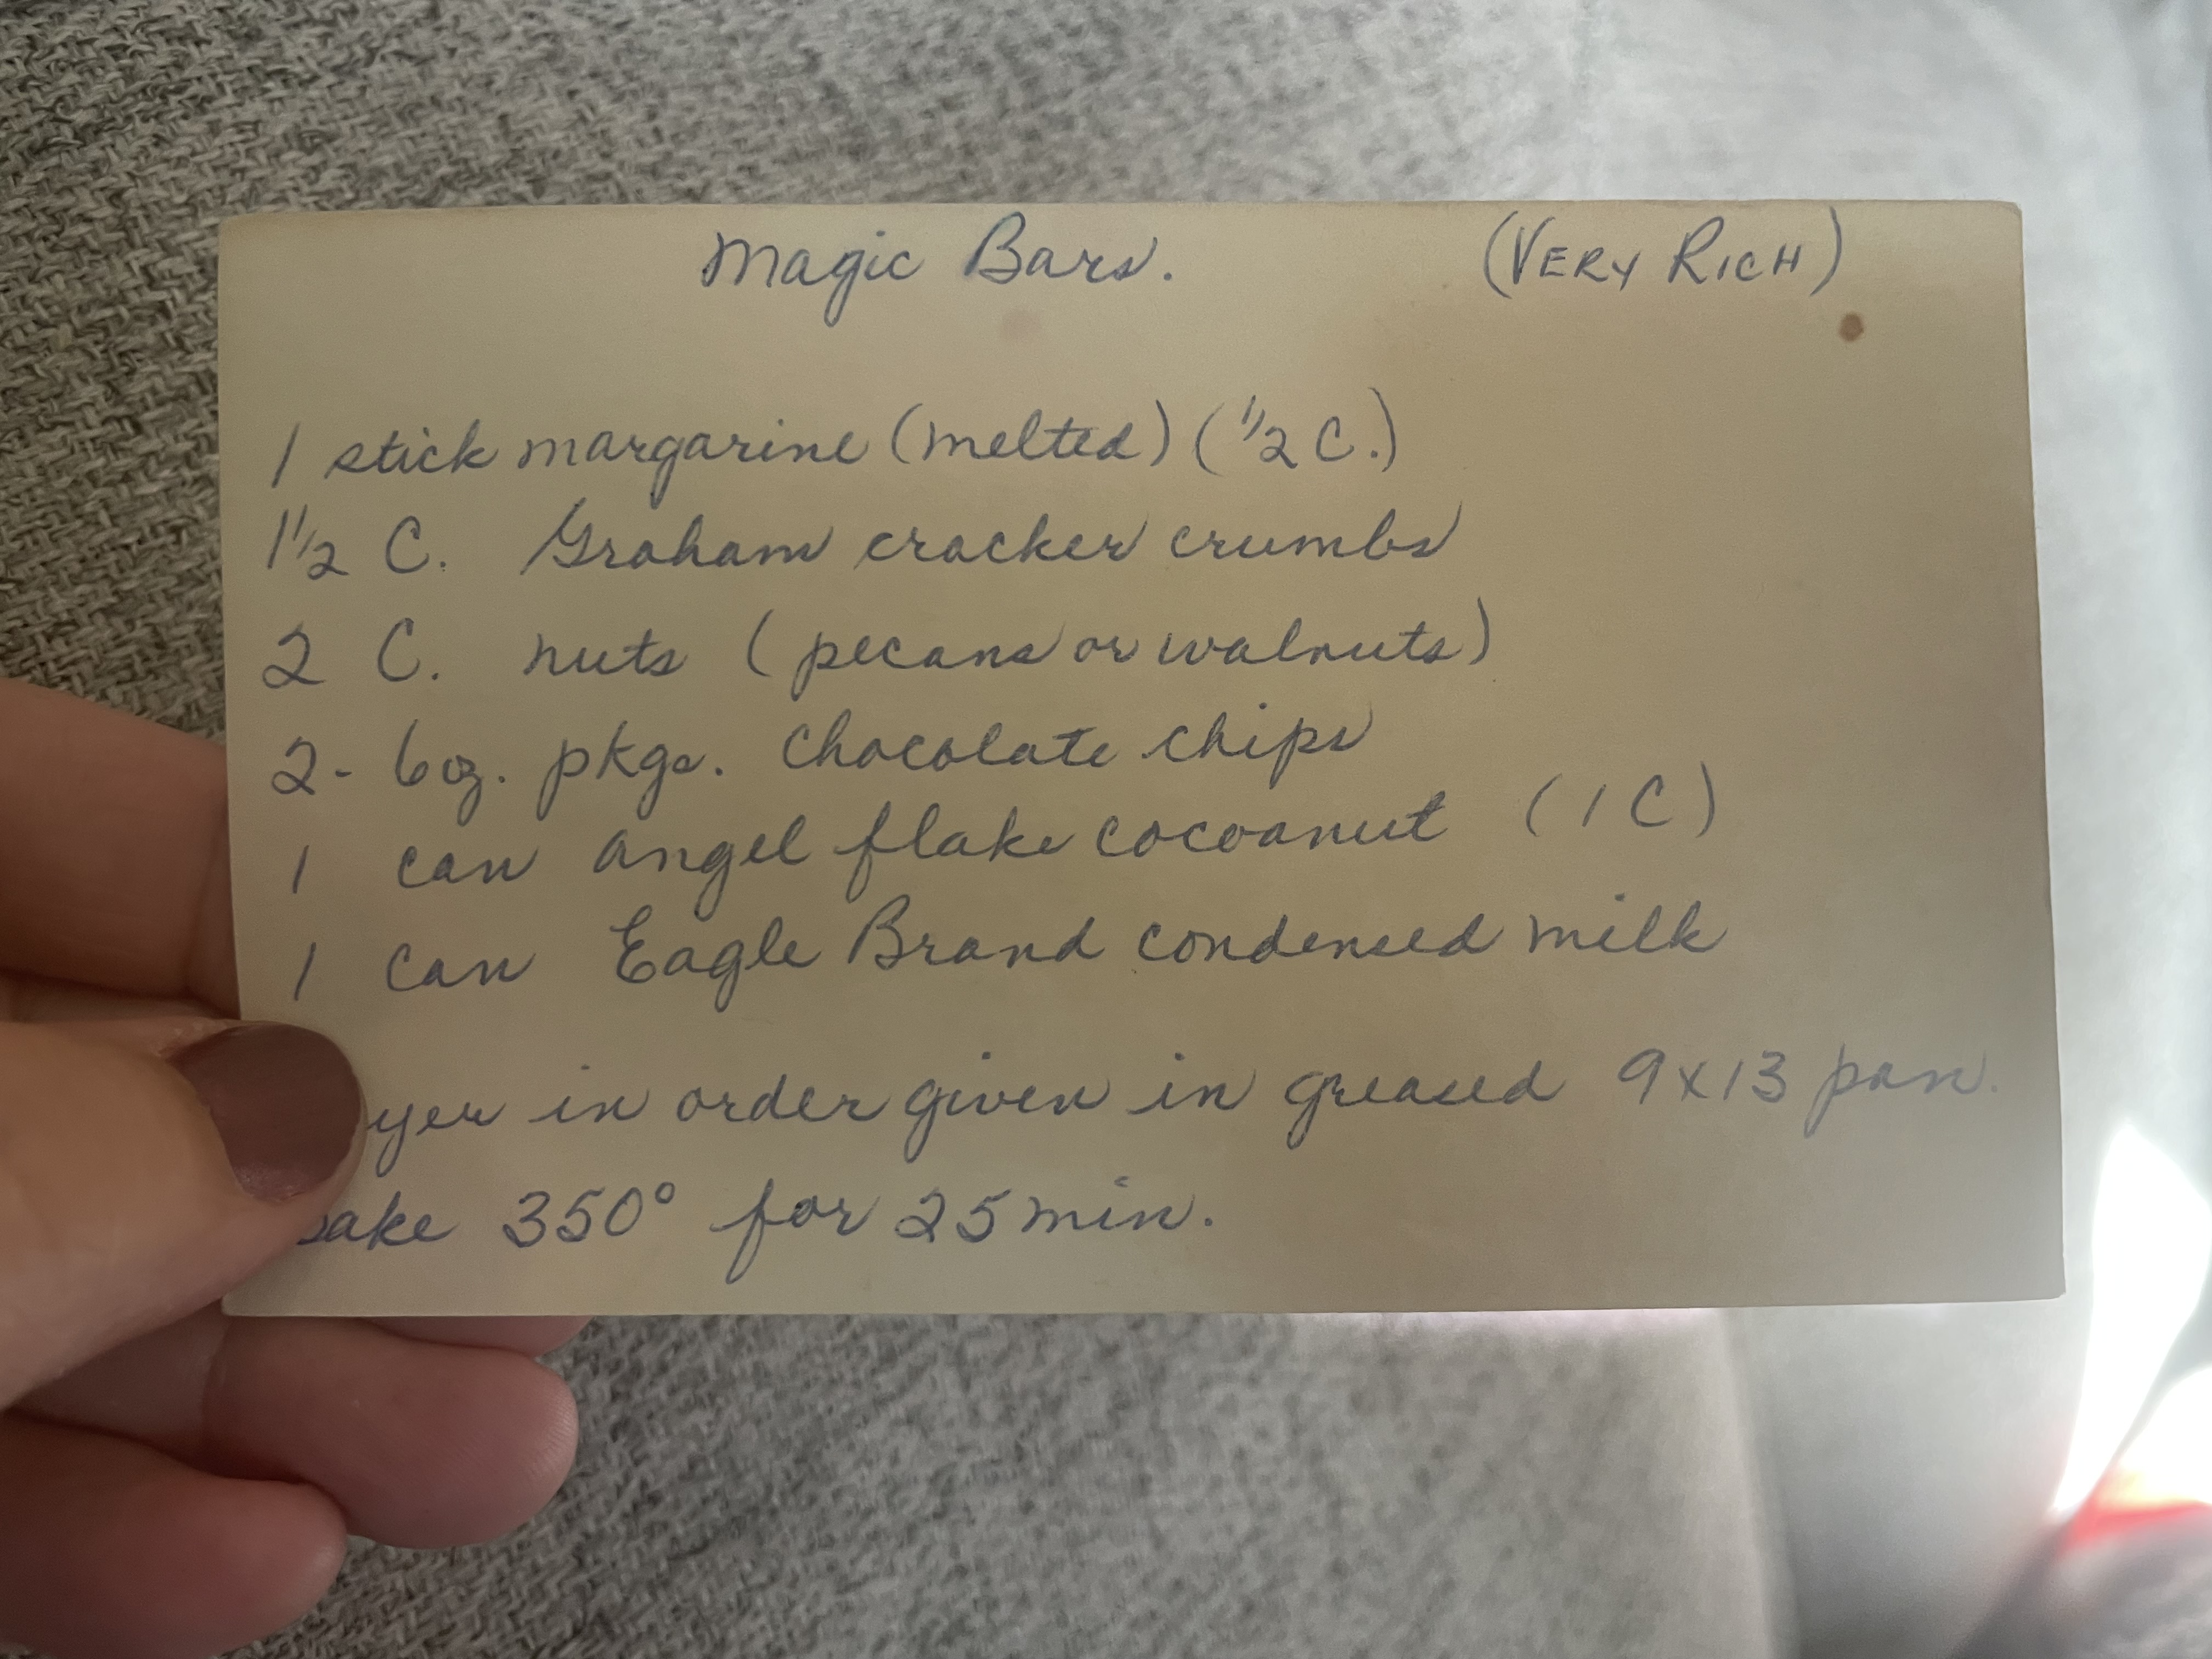 Magic Bars. (VERY RICH)
1 stick margarine (melted) (1/2 C.)
1 1/2 C. Graham cracker crumbs
2 C. nuts (pecans or walnuts)
2 - 6 oz. pkgs. Chocolate chips
1 can angel flake cocoanut (1 C)
1 can Eagle Brand condensed milk
yer in order given in greased 9x13 pan.
ake 350° for 25 min.